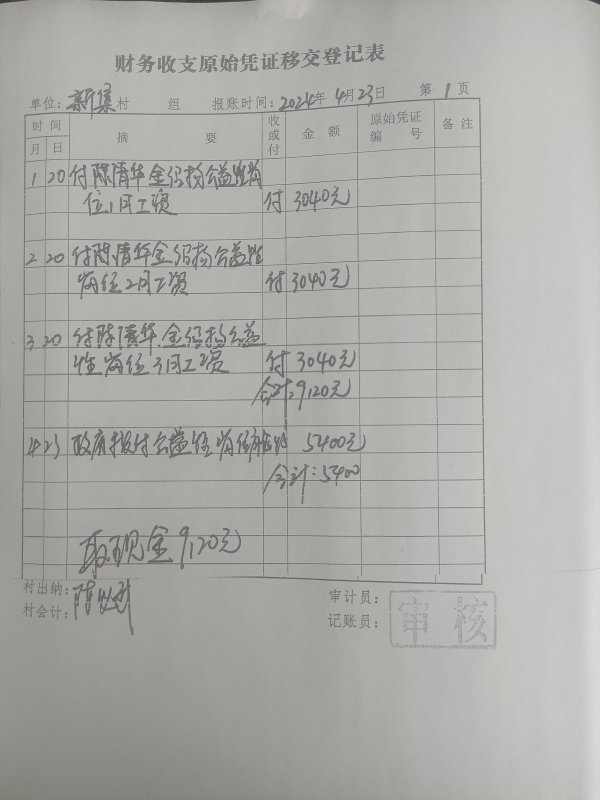 财务收支原始凭证移交登记表
单位: 新集 村 组 报账时间: 2024 年 4 月 23 日 第 1 页
时 间 摘 要 收或付 金 额 原始凭证编 号 备 注
月 日
1 20 付陈清华金绍扬公益性岗
位1月工资 付 3040元
2 20 付陈清华金绍扬公益性
岗位2月工资 付 3040元
3 20 付陈清华.金绍扬公益
性岗位3月工资 付 3040元
合计:9120元
4 23 政府拨付公益性岗位 5400元
合计:5400
取现金9120元
村出纳: 陈
村会计:
审计员:
记账员:
审核